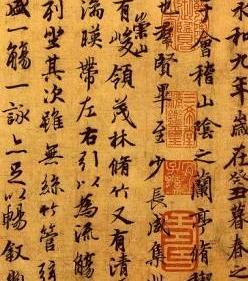 永和九年歲在癸丑暮春之
于會稽山陰之蘭亭脩禊
也群賢畢至少長咸集
有崇山峻領茂林脩竹又有清
湍暎帶左右引以為流觴
列坐其次雖無絲竹管弦
盛一觴一詠亦足以暢叙幽